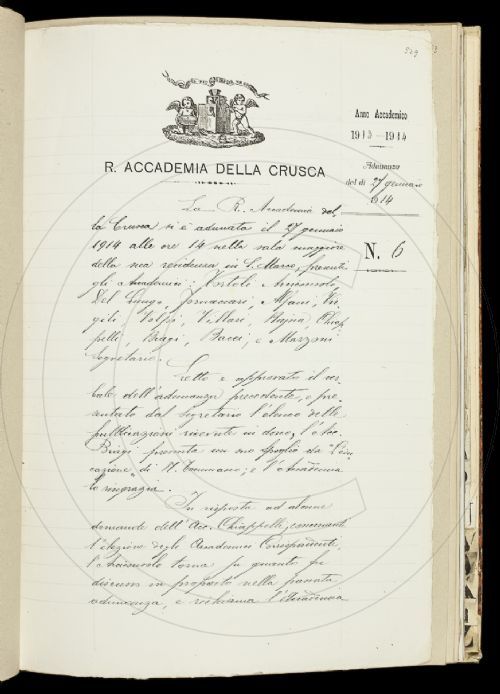 329
Anno Accademico
1913-1914
Adunanza
del dì 27 gennaio
1914
N. 6
R. ACCADEMIA DELLA CRUSCA
La R. Accademia del-
la Crusca si è adunata il 27 gennaio
1914 alle ore 14 nella sala maggiore
della sua residenza in S. Marco, presenti
gli Accademici: Tortoli Arciconsolo,
Del Lungo, Fornaciari, Alfani, Vir-
gili, Volpi, Villari, Rajna, Chiap-
pelli, Biagi, Bacci, e Mazzoni
Segretario.
Letto e approvato il ver-
bale dell'adunanza precedente, e pre-
sentato dal Segretario l'elenco delle
pubblicazioni ricevute in dono, l'Acc.
Biagi presenta un suo spoglio da
di N. Tommaseo; e l'Accademia
lo ringrazia.
In risposta ad alcune
domande dell'Acc. Chiappelli, concernenti
l'elezione degli Accademici Corrispondenti,
l'Arciconsolo torna su quanto fu
discusso in proposito nella passata
adunanza, e richiama l'Accademia